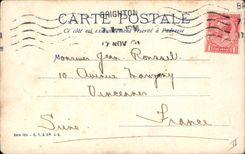 BRIGHTON
CARTE POSTALE
Ce côté est exclusivement réservé à l'adresse
17 NOV
Monsieur Jean Roussel
10 Avenue Marigny
Vincennes
Seine
France